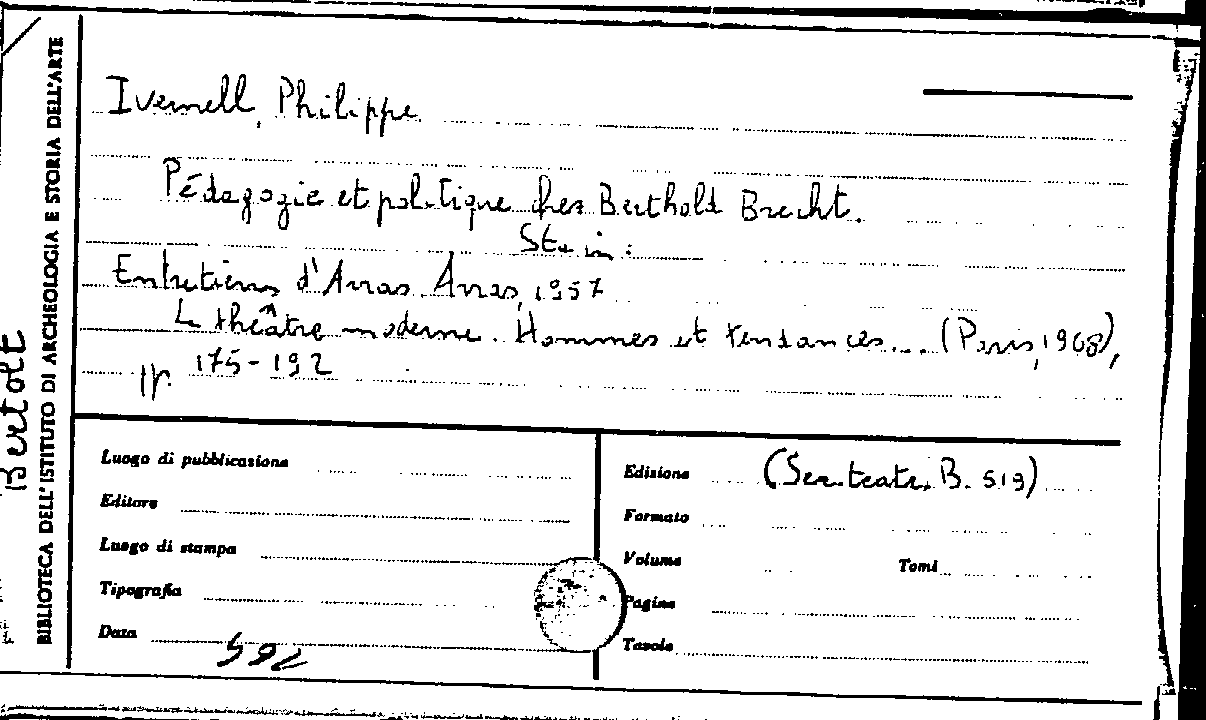 Ivernell, Philippe
Pédagogie et politique chez Berthold Brecht.
Sta in:
Entretiens d'Arras. Arras, 1957
Le théâtre moderne. Hommes et tendances... (Paris, 1968),
p. 175-192
Luogo di pubblicazione
Editore
Luogo di stampa
Tipografia
Data
Edizione (Ser. teatr. B. 519)
Formato
Volume Tomi
Pagine
Tavole
BIBLIOTECA DELL'ISTITUTO DI ARCHEOLOGIA E STORIA DELL'ARTE
Bertolt